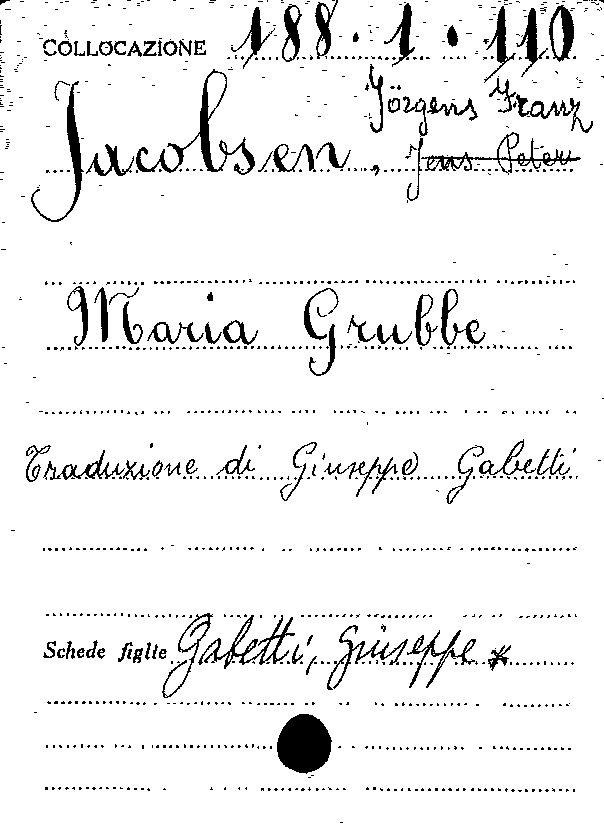 COLLOCAZIONE 188.1.110
Jörgens Franz
Jacobsen, Jens Peter
Maria Grubbe
Traduzione di Giuseppe Gabetti
Schede figlie Gabetti, Giuseppe *